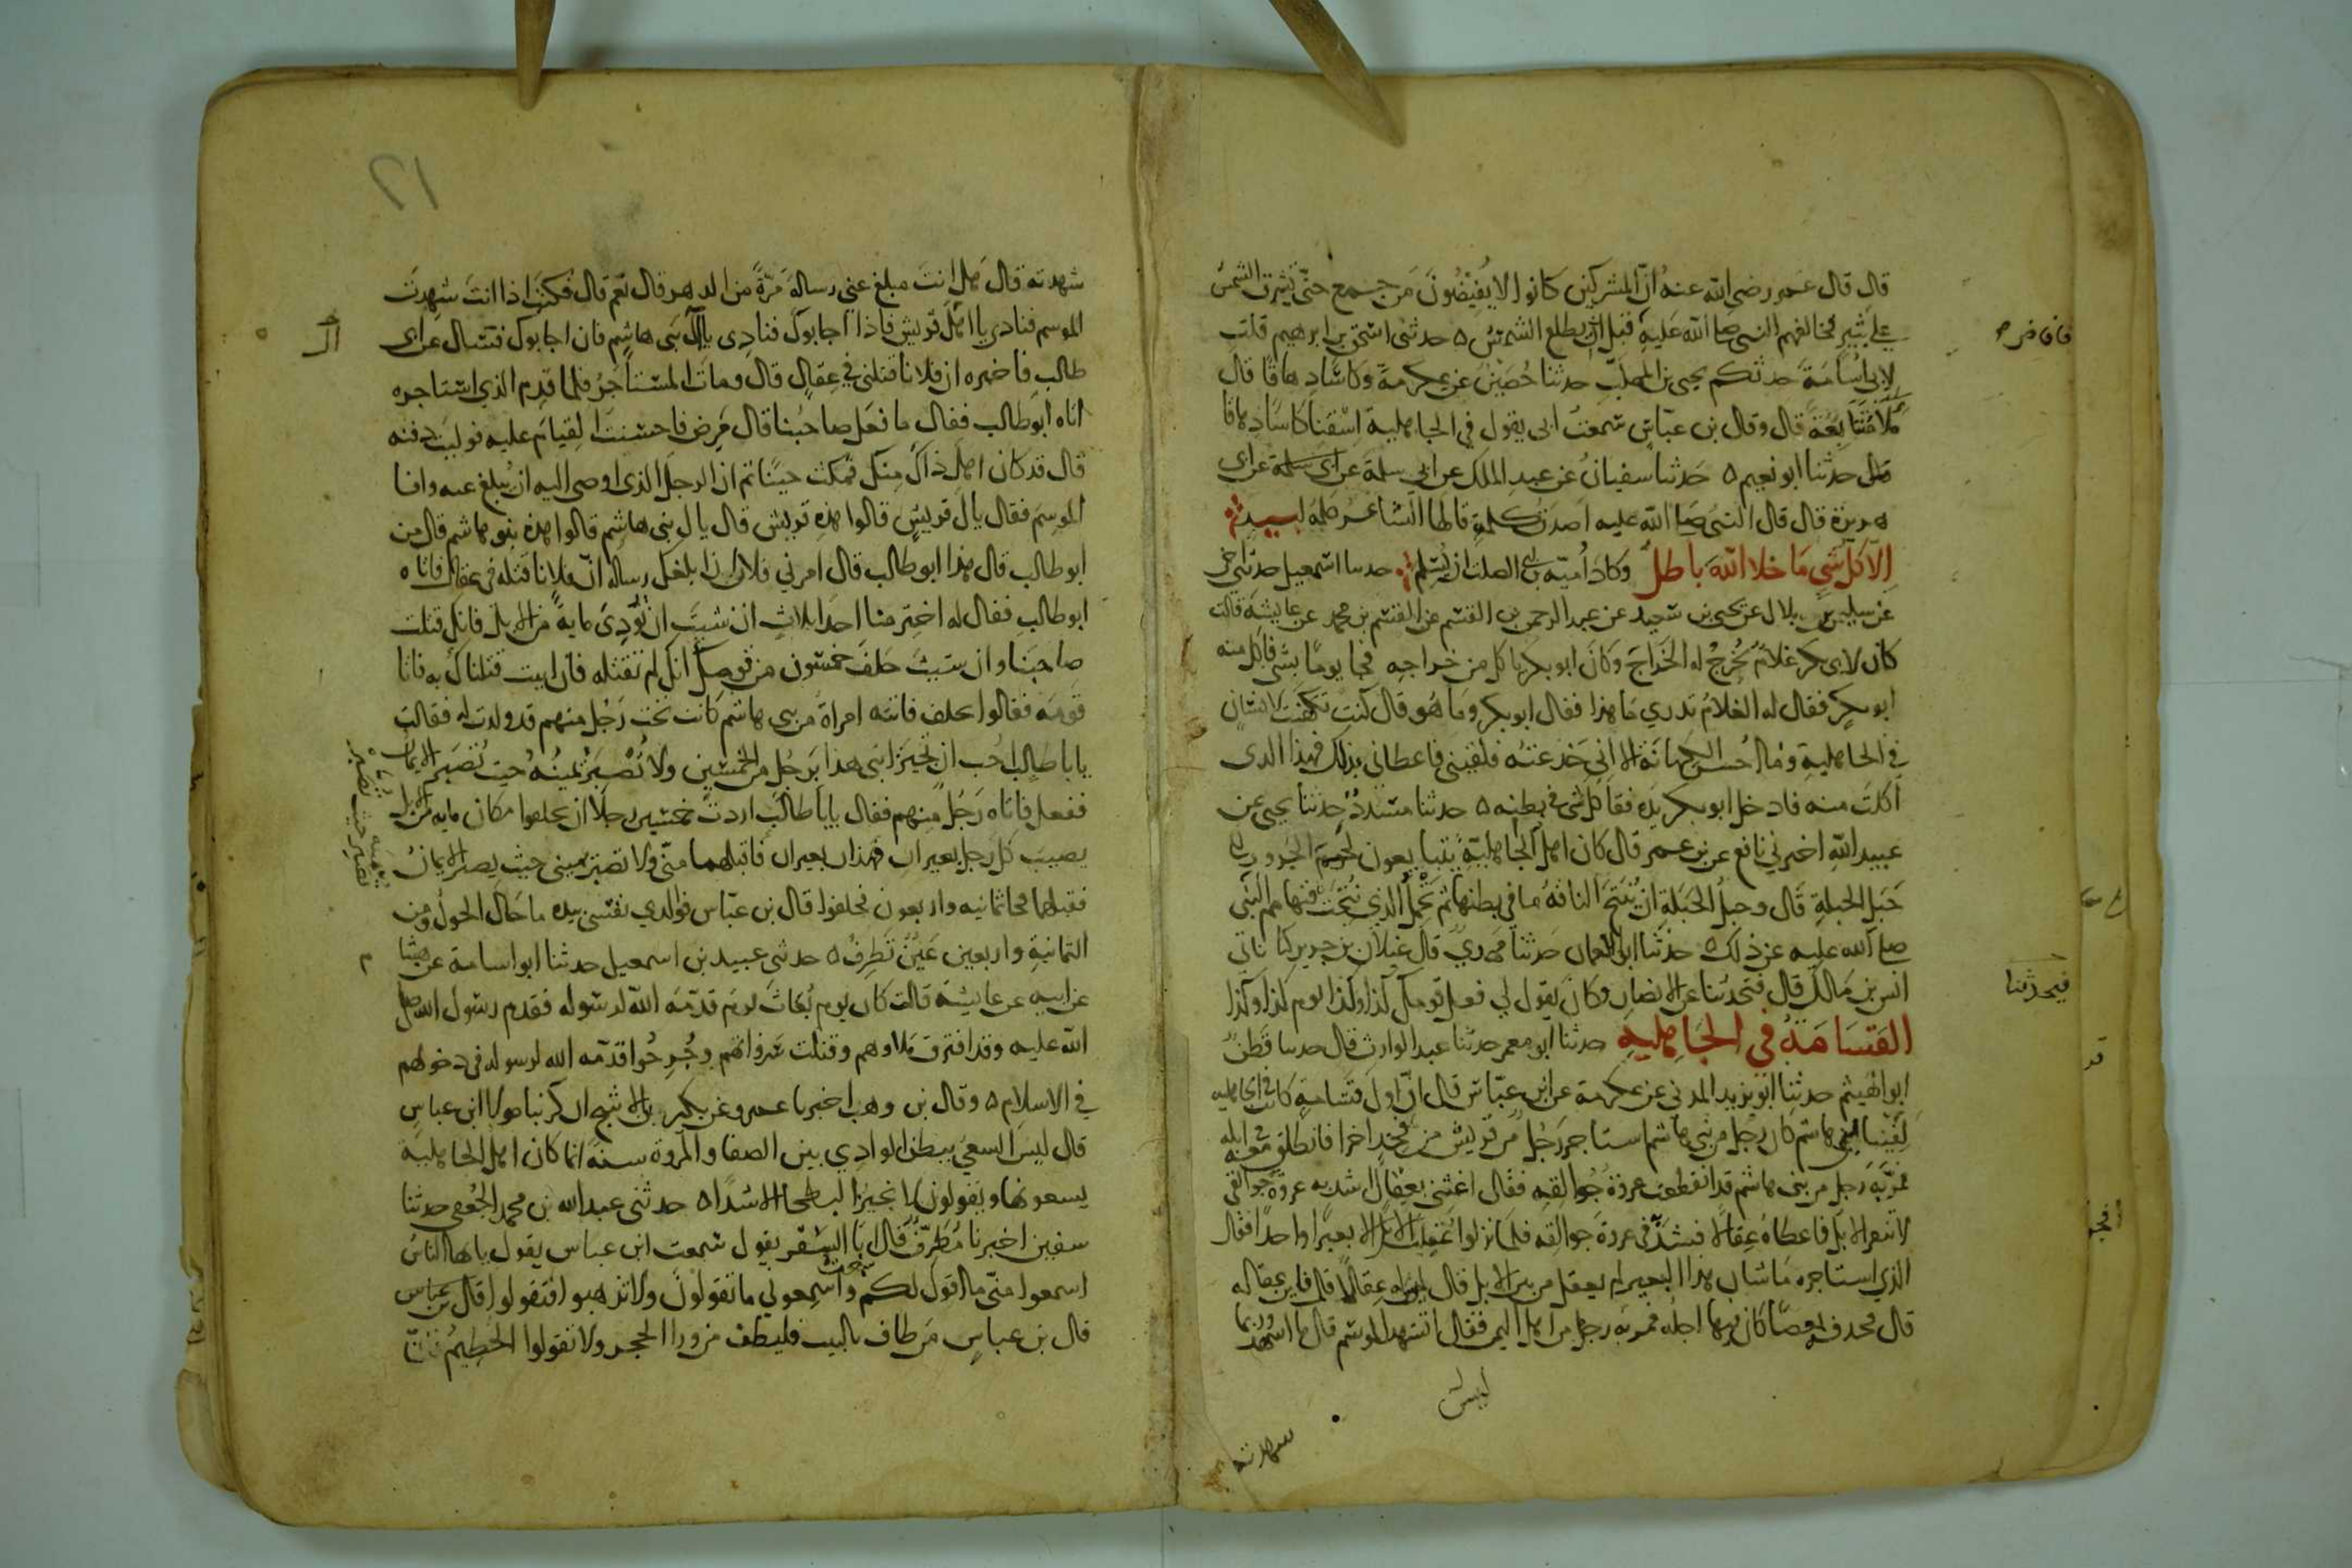 قال قال عمر رضي الله عنه ان المشركين كانوا لا يفيضون من جمع حتى تشرق الشمس
على ثبير فخالفهم النبي صلى الله عليه قبل ان يطلع الشمس ه حدثني اسحق بن ابرهيم قلت
لابي اسامة حدثكم يحيى بن المهلب حدثنا حصين عن عكرمة وكاسا دهاقا قال
ملأ متتابعة قال وقال بن عباس سمعت ابي يقول في الجاهلية اسقنا كاسا دهاقا
حدثنا ابو نعيم ه حدثنا سفيان عن عبد الملك عن ابي سلمة عن ابي سلمة عن ابي
هريرة قال قال النبي صلى الله عليه اصدق كلمة قالها الشاعر كلمة لبيد
الا كل شي ما خلا الله باطل وكاد أمية بن ابي الصلت ان يسلم حدثنا اسمعيل حدثني اخي
عن سليمن بن بلال عن يحيى بن سعيد عن عبد الرحمن بن القسم عن القسم بن محمد عن عايشة قالت
كان لابي بكر غلام يخرج له الخراج وكان ابو بكر ياكل من خراجه فجا يوما بشي فاكل منه
ابو بكر فقال له الغلام تدري ما هذا فقال ابو بكر وما هو قال كنت تكهنت لانسان
في الجاهلية وما احسن الكهانة الا اني خدعته فلقيني فاعطاني بذلك فهذا الذي
اكلت منه فادخل ابو بكر يده فقا كل شي في بطنه ه حدثنا مسدد حدثنا يحيى عن
عبيد الله اخبرني نافع عن بن عمر قال كان اهل الجاهلية يتبايعون لحوم الجزور الى
حبل الحبلة قال وحبل الحبلة ان تنتج الناقة ما في بطنها ثم تحمل الذي نتجت فنهاهم النبي
صلى الله عليه عن ذلك ه حدثنا ابو النعمان حدثنا مهدي قال غيلان بن جرير كنا ناتي
انس بن مالك قال فتحدثنا عن الانصار وكان يقول لي فعل قومك كذا وكذا يوم كذا وكذا
القسامة في الجاهلية حدثنا ابو معمر حدثنا عبد الوارث قال حدثنا قطن
ابو الهيثم حدثنا ابو يزيد المدني عن عكرمة عن ابن عباس قال ان اول قسامة كانت في الجاهلية
لفينا بني هاشم كان رجل من بني هاشم استاجر رجل من قريش من فخذ اخرا فانطلق معه في ابله
فمر به رجل من بني هاشم قد انقطعت عروة جوالقه فقال اغثني بعقال اشد به عروة جوالقي
لا تنفر الابل فاعطاه عقالا فشد في عروة جوالقه فلما نزلوا عقلت الابل الا بعيرا واحدا فقال
الذي استاجره ما شان هذا البعير لم يعقل من بين الابل قال ليس له عقال قال فاين عقاله
قال فحذفه بعصا كان فيها اجله فمر به رجل من اهل اليمن فقال اتشهد الموسم قال ما اشهد وربما
ليس
شهدته
فيحدثنا
قد
فخذ
شهدته قال هل انت مبلغ عني رسالة مرة من الدهر قال نعم قال فكنت اذا انت شهدت
الموسم فنادي يا اهل قريش فاذا اجابوك فنادي يال بني هاشم فان اجابوك فتسال عن ابي
طالب فاخبره ان فلانا قتلني في عقال قال ومات المستاجر فلما قدم الذي استاجره
اتاه ابو طالب فقال ما فعل صاحبنا قال مرض فاحسنت القيام عليه فوليت دفنه
قال قد كان اهل ذاك منك فمكث حينا ثم ان الرجل الذي اوصى اليه ان يبلغ عنه وافا
الموسم فقال يال قريش قالوا هذه قريش قال يال بني هاشم قالوا هذه بنو هاشم قال من
ابو طالب قال هذا ابو طالب قال امرني فلان ان ابلغك رسالة ان فلانا قتله في عقال فاتاه
ابو طالب فقال له اختر منا احدا ثلاث ان شيت ان تؤدي ماية من الابل فانك قتلت
صاحبنا وان شيت حلف خمسون من قومك انك لم تقتله فان ابيت قتلناك به فاتا
قومه فقالوا نحلف فاتته امراة من بني هاشم كانت تحت رجل منهم قد ولدت له فقالت
يابا طالب احب ان تجيز ابني هذا برجل من الخمسين ولا تصبر يمينه حيث تصبر الايمان
ففعل فاتاه رجل منهم فقال يابا طالب اردت خمسين رجلا ان يحلفوا مكان ماية من الابل
يصيب كل رجل بعيران فهذان بعيران فاقبلهما مني ولا تصبر يميني حيث يصبر الايمان
فقبلهما فجا ثمانيه واربعون فحلفوا قال بن عباس فوالذي نفسي بيده ما حال الحول ومن
الثمانية واربعين عين تطرف ه حدثني عبيد بن اسمعيل حدثنا ابو اسامة عن هشا
عن ابيه عن عايشة قالت كان يوم بعاث يوم قدمه الله لرسوله فقدم رسول الله صلى
الله عليه وقد افترق ملاوهم وقتلت سرواتهم وجرحوا قدمه الله لرسوله في دخولهم
في الاسلام ه وقال بن وهب اخبرنا عمرو عن بكير بن الاشج ان كريبا مولى ابن عباس
قال ليس السعي ببطن الوادي بين الصفا والمروة سنة انما كان اهل الجاهلية
يسعونها ويقولون لا نجيز البطحا الا شدا ه حدثني عبد الله بن محمد الجعفي حدثنا
سفين اخبرنا مطرف قال ابا السفر يقول سمعت ابن عباس يقول يايها الناس
اسمعوا مني ما اقول لكم واسمعوني ما تقولون ولا تذهبوا فتقولوا قال بن عباس
قال بن عباس من طاف بالبيت فليطف من ورا الحجر ولا تقولوا الحطيم
سمعت
ال
م
١٦